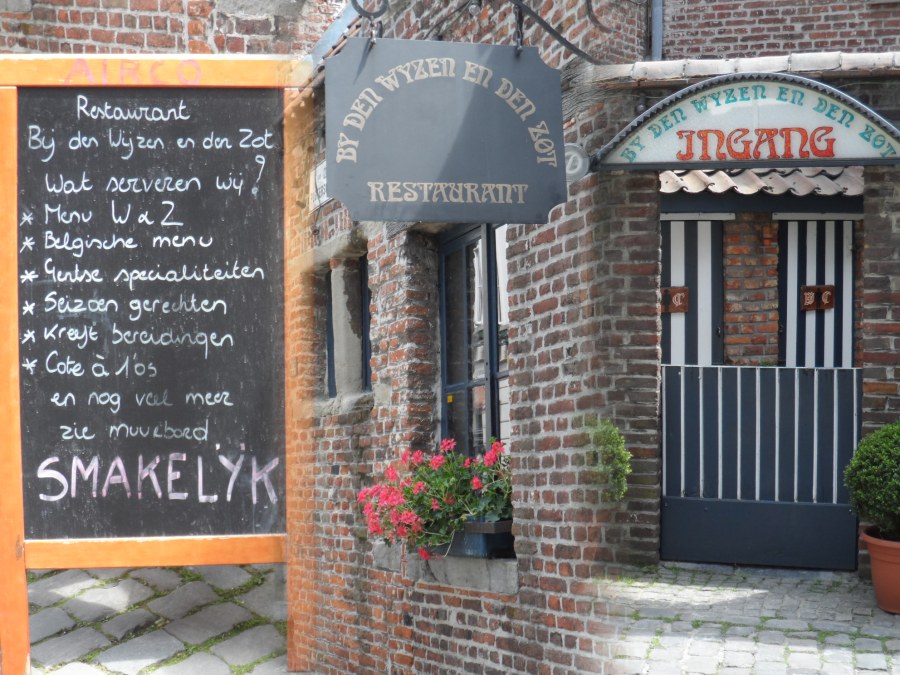 AIRCO
Restaurant
Bij den Wijzen en den Zot
Wat serveren wij?
* Menu W & Z
* Belgische menu
* Gentse specialiteiten
* Seizoen gerechten
* Kreeft bereidingen
* Cote à l'os
en nog veel meer
zie muurbord
SMAKELŸK
BY DEN WYZEN EN DEN ZOT
RESTAURANT
BY DEN WYZEN EN DEN ZOT
INGANG